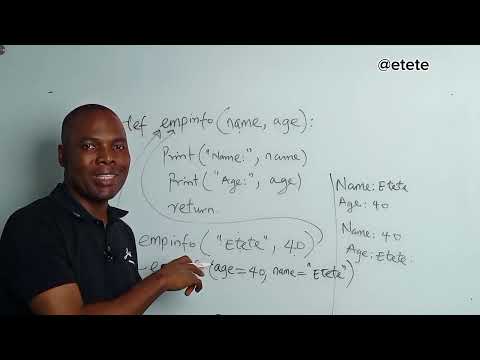 @etete
def empinfo(name, age):
Print("Name:", name)
Print("Age:", age)
return
empinfo("Etete", 40)
(age=40, name="Etete")
Name: Etete
Age: 40
Name: 40
Age: Etete